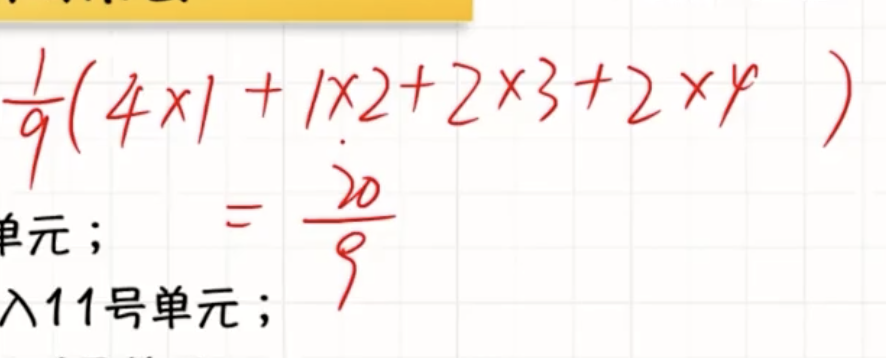 1/9(4×1+1×2+2×3+2×4)
=20/9
单元；
入11号单元；